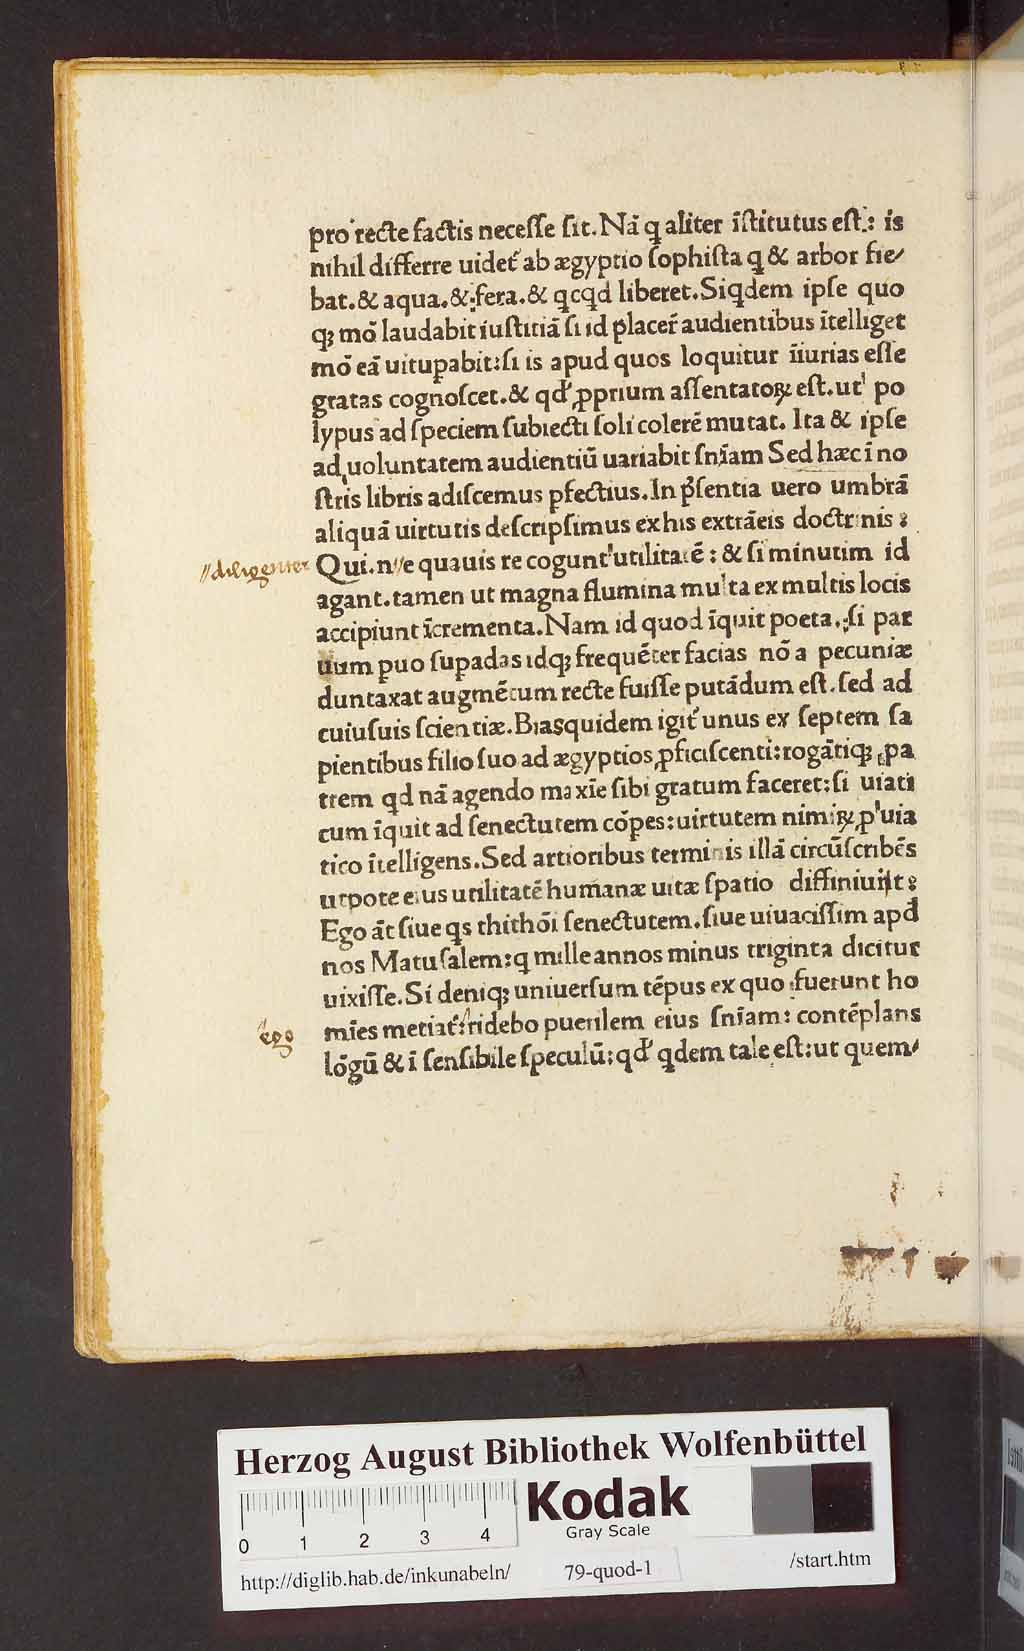 pro recte factis necesse sit. Nā q aliter īstitutus est: is
nihil differre uidet᷑ ab ægyptio sophista q & arbor fie/
bat. & aqua. & fera. & qcqd liberet. Siqdem ipse quo
qꝫ mō laudabit iustitiā si id placer̄ audientibus ītelliget
mō eā uituꝑabit: si is apud quos loquitur īiurias esse
gratas cognoscet. & qd' ꝓprium assentatoꝝ est. ut po
lypus ad speciem subiecti soli colerē mutat. Ita & ipse
ad uoluntatem audientiū uariabit snīam Sed hæc ī no
stris libris adiscemus ꝑfectius. In p̄sentia uero umbrā
aliquā uirtutis descripsimus ex his extrāeis doctrinis:
//diligenter
Qui. n //e quauis re cogunt᷑ utilitatē: & si minutim id
agant. tamen ut magna flumina multa ex multis locis
accipiunt īcrementa. Nam id quod īquit poeta. si par
uum ꝑuo suꝑadas idqꝫ frequēter facias nō a pecuniæ
duntaxat augmētum recte fuisse putādum est. sed ad
cuiusuis scientiæ. Bias quidem igit᷑ unus ex septem sa
pientibus filio suo ad ægyptios ꝓficiscenti: rogātiqꝫ pa
trem qd nā agendo maxīe sibi gratum faceret: si uiati
cum īquit ad senectutem cōpes: uirtutem nimiꝝ p uia
tico ītelligens. Sed artioribus terminis illā circūscribēs
utpote eius utilitatē humanæ uitæ spatio diffiniuit:
Ego āt siue qs thithōi senectutem. siue uiuacissim apđ
nos Matusalem: q mille annos minus triginta dicitur
uixisse. Si deniqꝫ uniuersum tēpus ex quo fuerunt ho
ego
mīes metiat᷑: ridebo puerilem eius snīam: contēplans
lōgū & ī sensibile speculū: qd' qdem tale est: ut quem/
Herzog August Bibliothek Wolfenbüttel
0 1 2 3 4
Kodak
Gray Scale
http://diglib.hab.de/inkunabeln/ 79-quod-1 /start.htm